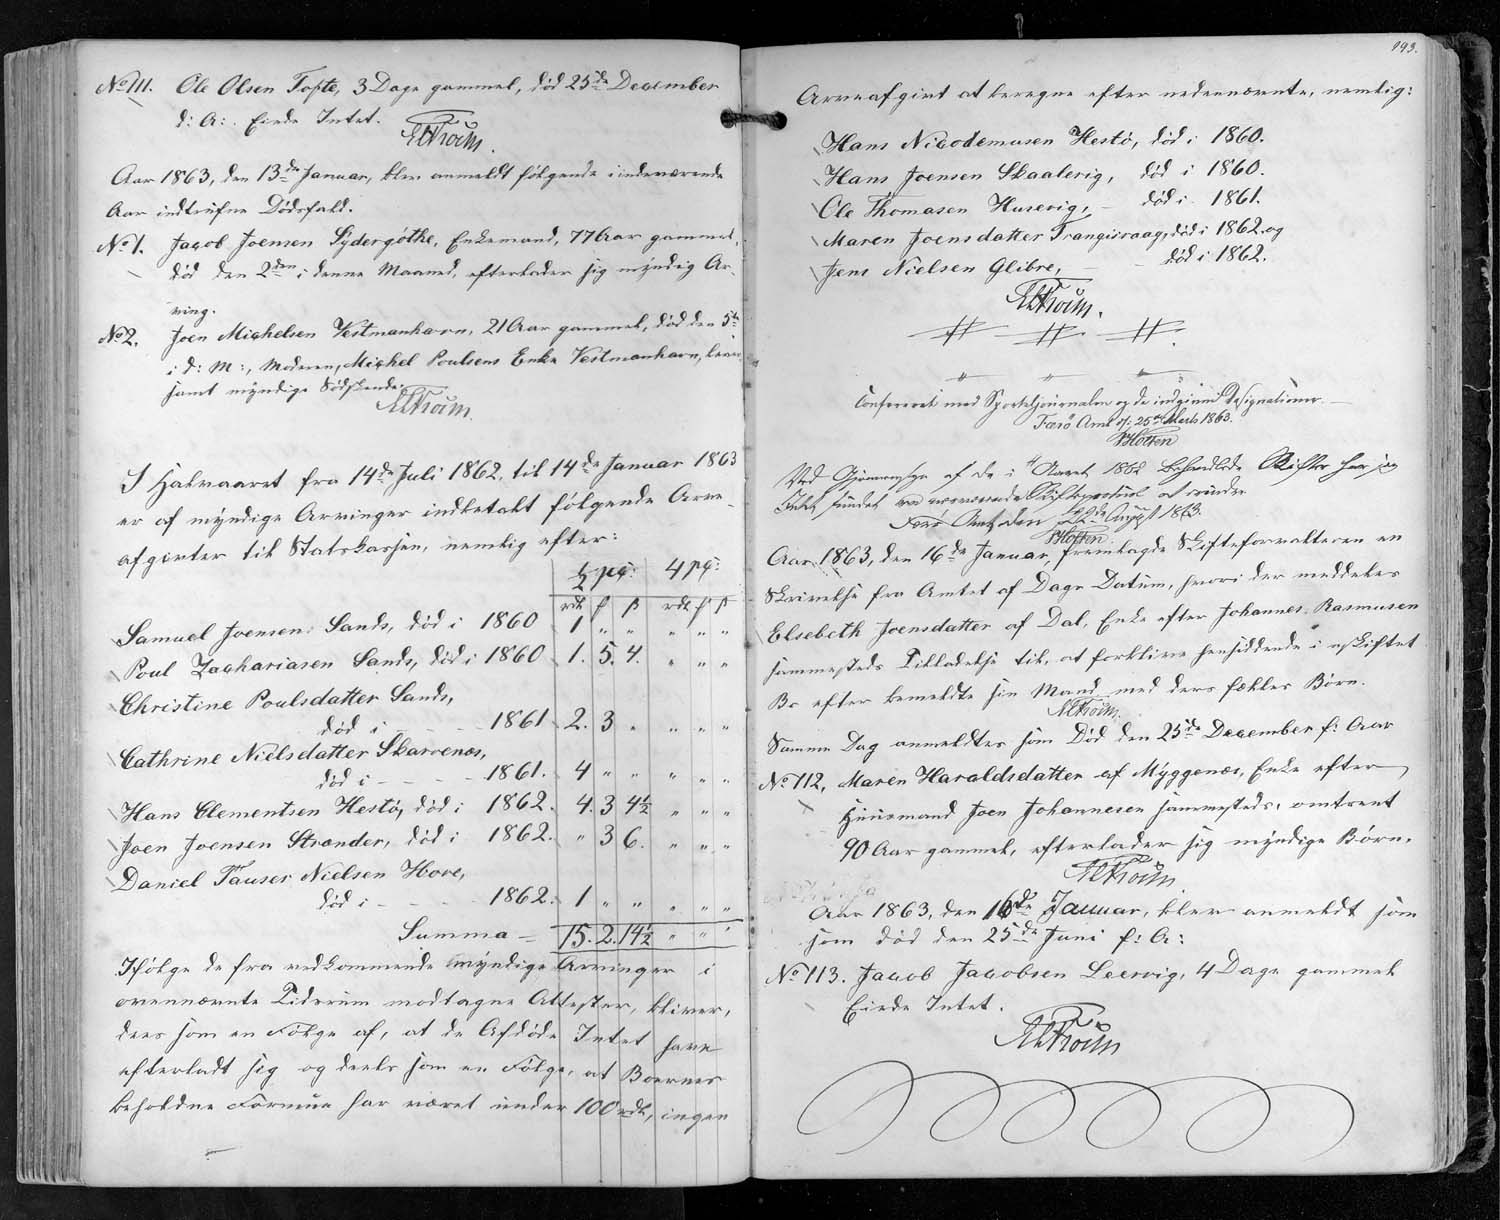 No 111. Ole Olsen Tofte, 3 Dage gammel, død 25de December
d: A:. Eiede Intet.
Aar 1863, den 13de Januar, blev anmeldt følgende i indeværende
Aar indtrufne Dødsfald.
No 1. Jacob Joensen Sydergøthe, Enkemand, 77 Aar gammel,
død den 2den i denne Maaned, efterlader sig myndig Ar-
ving.
No 2. Joen Michelsen Vestmanhavn, 21 Aar gammel, død den 5te
i d: M:, Moderen, Michel Poulsens Enke Vestmanhavn, lever
samt myndige Sødskende.
I Halvaaret fra 14de Juli 1862 til 14de Januar 1863
er af myndige Arvinger indbetalt følgende Arve-
afgivter til Statskassen, nemlig efter:
½ pC: 4 pC:
rdl ꝭ ß rdl ꝭ ß
Samuel Joensen Sands, død i 1860 1 " " " " "
Poul Zachariasen Sands, død i 1860 1. 5. 4. " " "
Christine Poulsdatter Sands,
død i - - - 1861 2. 3 " " " "
Cathrine Nielsdatter Skarvenæs,
død i - - - - 1861. 4 " " " " "
Hans Clementsen Hestø, død i 1862. 4. 3 4½ " " "
Joen Joensen Strænder, død i 1862. " 3 6. " " "
Daniel Tauser Nielsen Hove,
død i - - - - 1862. 1 " " " " "
Summa - 15. 2. 14½ " " "
Ifølge de fra vedkommende myndige Arvinger i
ovennævnte Tidsrum modtagne Attester, bliver,
deels som en Følge af, at de Afdøde Intet have
efterladt sig og deels som en Følge, at Boernes
beholdne Formue har været under 100 rdl, ingen
193.
Arveafgivt at beregne efter nedennævnte, nemlig:
Hans Nicodemusen Hestø, død i 1860.
Hans Joensen Skaalevig, død i 1860.
Ole Thomasen Husevig, - død i 1861.
Maren Joensdatter Trangisvaag, død i 1862. og
Jens Nielsen Glibre, - - død i 1862.
Confereret med Sporteljournalen og de indgivne Designationer. -
Færø Amt d: 25de Marts 1863.
Ved Gjennemsyn af de i Aaret 1862 behandlede Skifter har jeg
Intet fundet ved nærværende Skifteprotocol at erindre
Færø Amt den 22de August 1863.
Aar 1863, den 16de Januar, fremlagde Skifteforvalteren en
Skrivelse fra Amtet af Dags Datum, hvori der meddeles
Elsebeth Joensdatter af Dal, Enke efter Johannes Rasmusen
sammesteds Tilladelse til, at forblive hensiddende i uskiftet
Bo efter bemeldte sin Mand med deres fælles Børn.
Samme Dag anmeldtes som Død den 23de December f: Aar
No 112, Maren Haraldsdatter af Myggenæs, Enke efter
Huusmand Joen Johannesen sammesteds, omtrent
90 Aar gammel, efterlader sig myndige Børn.
Aar 1863, den 16de Januar, blev anmeldt som
som død den 25de Juni f: A:
No 113. Jacob Jacobsen Leervig, 4 Dage gammel
Eiede Intet.